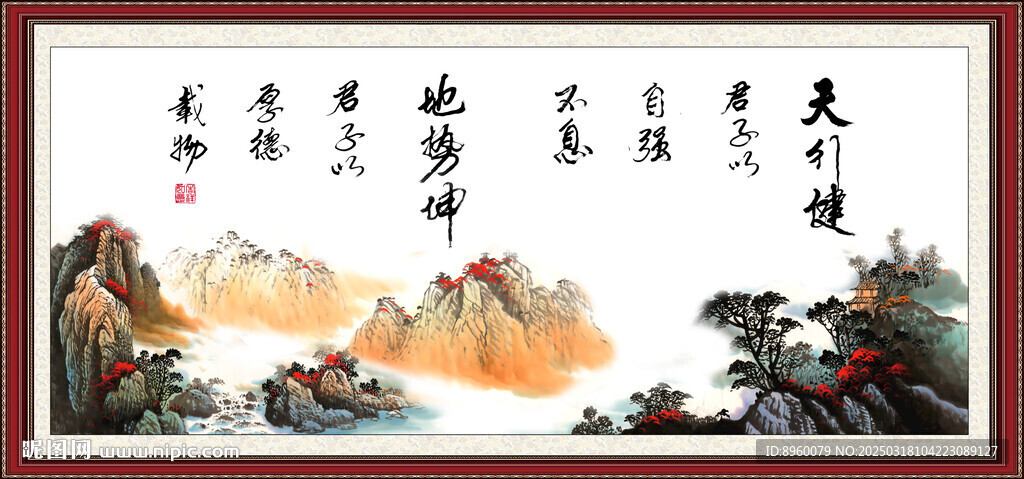 天行健
君子以
自强
不息
地势坤
君子以
厚德
载物
昵图网 www.nipic.com
ID:8960079 NO:20250318104223089127